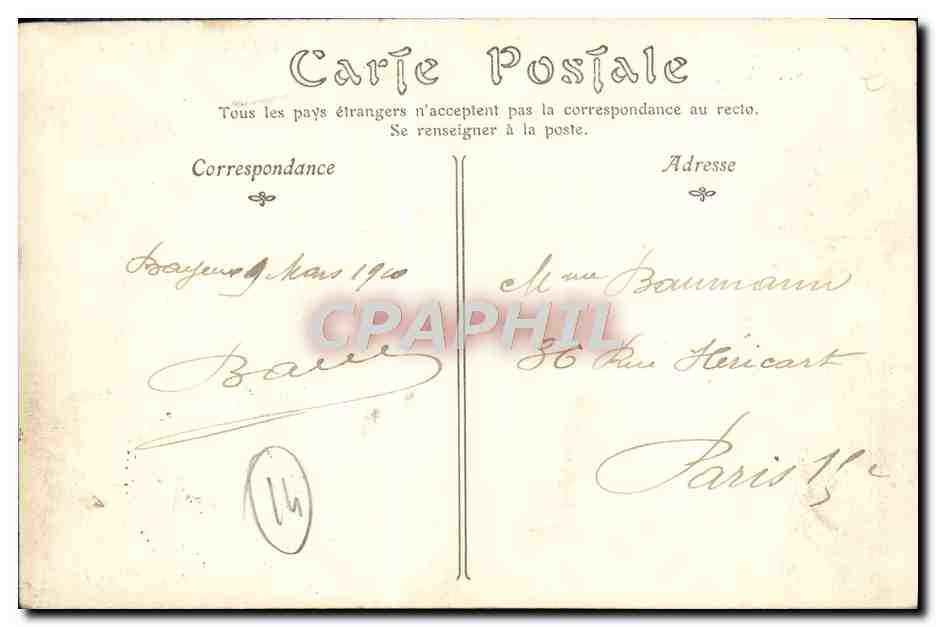 Carte Postale
Tous les pays étrangers n'acceptent pas la correspondance au recto.
Se renseigner à la poste.
Correspondance
Adresse
Bayeux 9 Mars 1910
Mme Baumann
36 Rue Héricart
Paris 15e
14
CPAPHIL